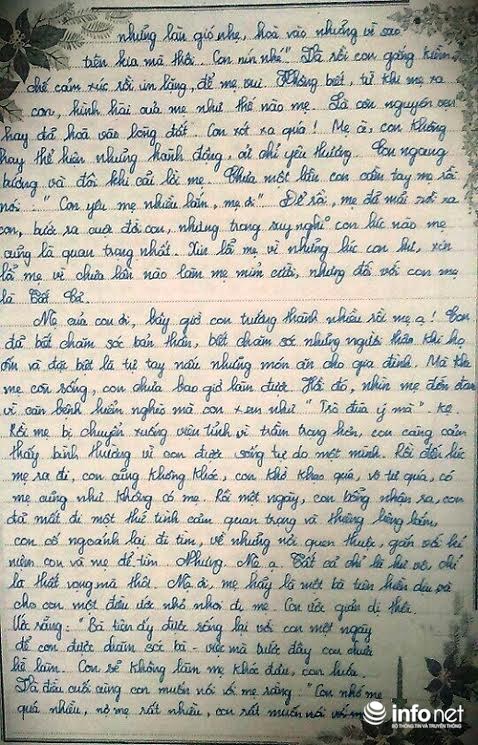 những làn gió nhẹ, hoà vào những vì sao
trên kia mà thôi. Con nín nhé". Và rồi con gắng kiềm
chế cảm xúc rồi im lặng, để mẹ vui. Không biết, từ khi mẹ xa
con, hình hài của mẹ như thế nào mẹ. Là còn nguyên vẹn
hay đã hoà vào lòng đất. Con xót xa quá! Mẹ à, con không
hay thể hiện những hành động, cử chỉ yêu thương. Con ngang
bướng và đôi khi cãi lời mẹ. Chưa một lần con cầm tay mẹ rồi
nói: "Con yêu mẹ nhiều lắm, mẹ ơi". Để rồi, mẹ đã mãi rời xa
con, bước ra cuộc đời con, nhưng trong suy nghĩ con lúc nào mẹ
cũng là quan trọng nhất. Xin lỗi mẹ vì những lúc con hư, xin
lỗi mẹ vì chưa lần nào làm mẹ mỉm cười, nhưng đối với con mẹ
là Tất Cả.
Mẹ của con ơi, bây giờ con trưởng thành nhiều rồi mẹ ạ! Con
đã biết chăm sóc bản thân, biết chăm sóc những người thân khi họ
ốm và đặc biệt là tự tay nấu những món ăn cho gia đình. Mà khi
mẹ còn sống, con chưa bao giờ làm được. Hồi đó, nhìn mẹ đớn đau
vì căn bệnh hiểm nghèo mà con xem như "Trò đùa ý mà".
Rồi mẹ bị chuyển xuống viện tỉnh vì trầm trọng hơn, con càng cảm
thấy bình thường vì con được sống tự do một mình. Rồi đến lúc
mẹ ra đi, con cũng không khóc, con khờ khạo quá, vô tư quá, có
mẹ cũng như không có mẹ. Rồi một ngày, con bỗng nhận ra, con
đã mất đi một thứ tình cảm quan trọng và thiêng liêng lắm,
con cố ngoảnh lại đi tìm, về những nơi quen thuộc, gắn với kỉ
niệm con và mẹ để tìm. Nhưng. Mẹ ạ. Tất cả chỉ là hư vô, chỉ
là thất vọng mà thôi. Mẹ ơi, mẹ hãy là một bà tiên hiền dịu và
cho con một điều ước nhỏ nhoi đi mẹ. Con ước giản dị thôi.
Ước rằng: "Bà tiên ấy được sống lại với con một ngày
để con được chăm sóc bà - việc mà trước đây con chưa
hề làm. Con sẽ không làm mẹ khóc đâu, con hứa.
Và điều cuối cùng con muốn nói với mẹ rằng: "Con nhớ mẹ
quá nhiều, nợ mẹ rất nhiều, con rất muốn nói với mẹ
infonet
BỘ THÔNG TIN VÀ TRUYỀN THÔNG